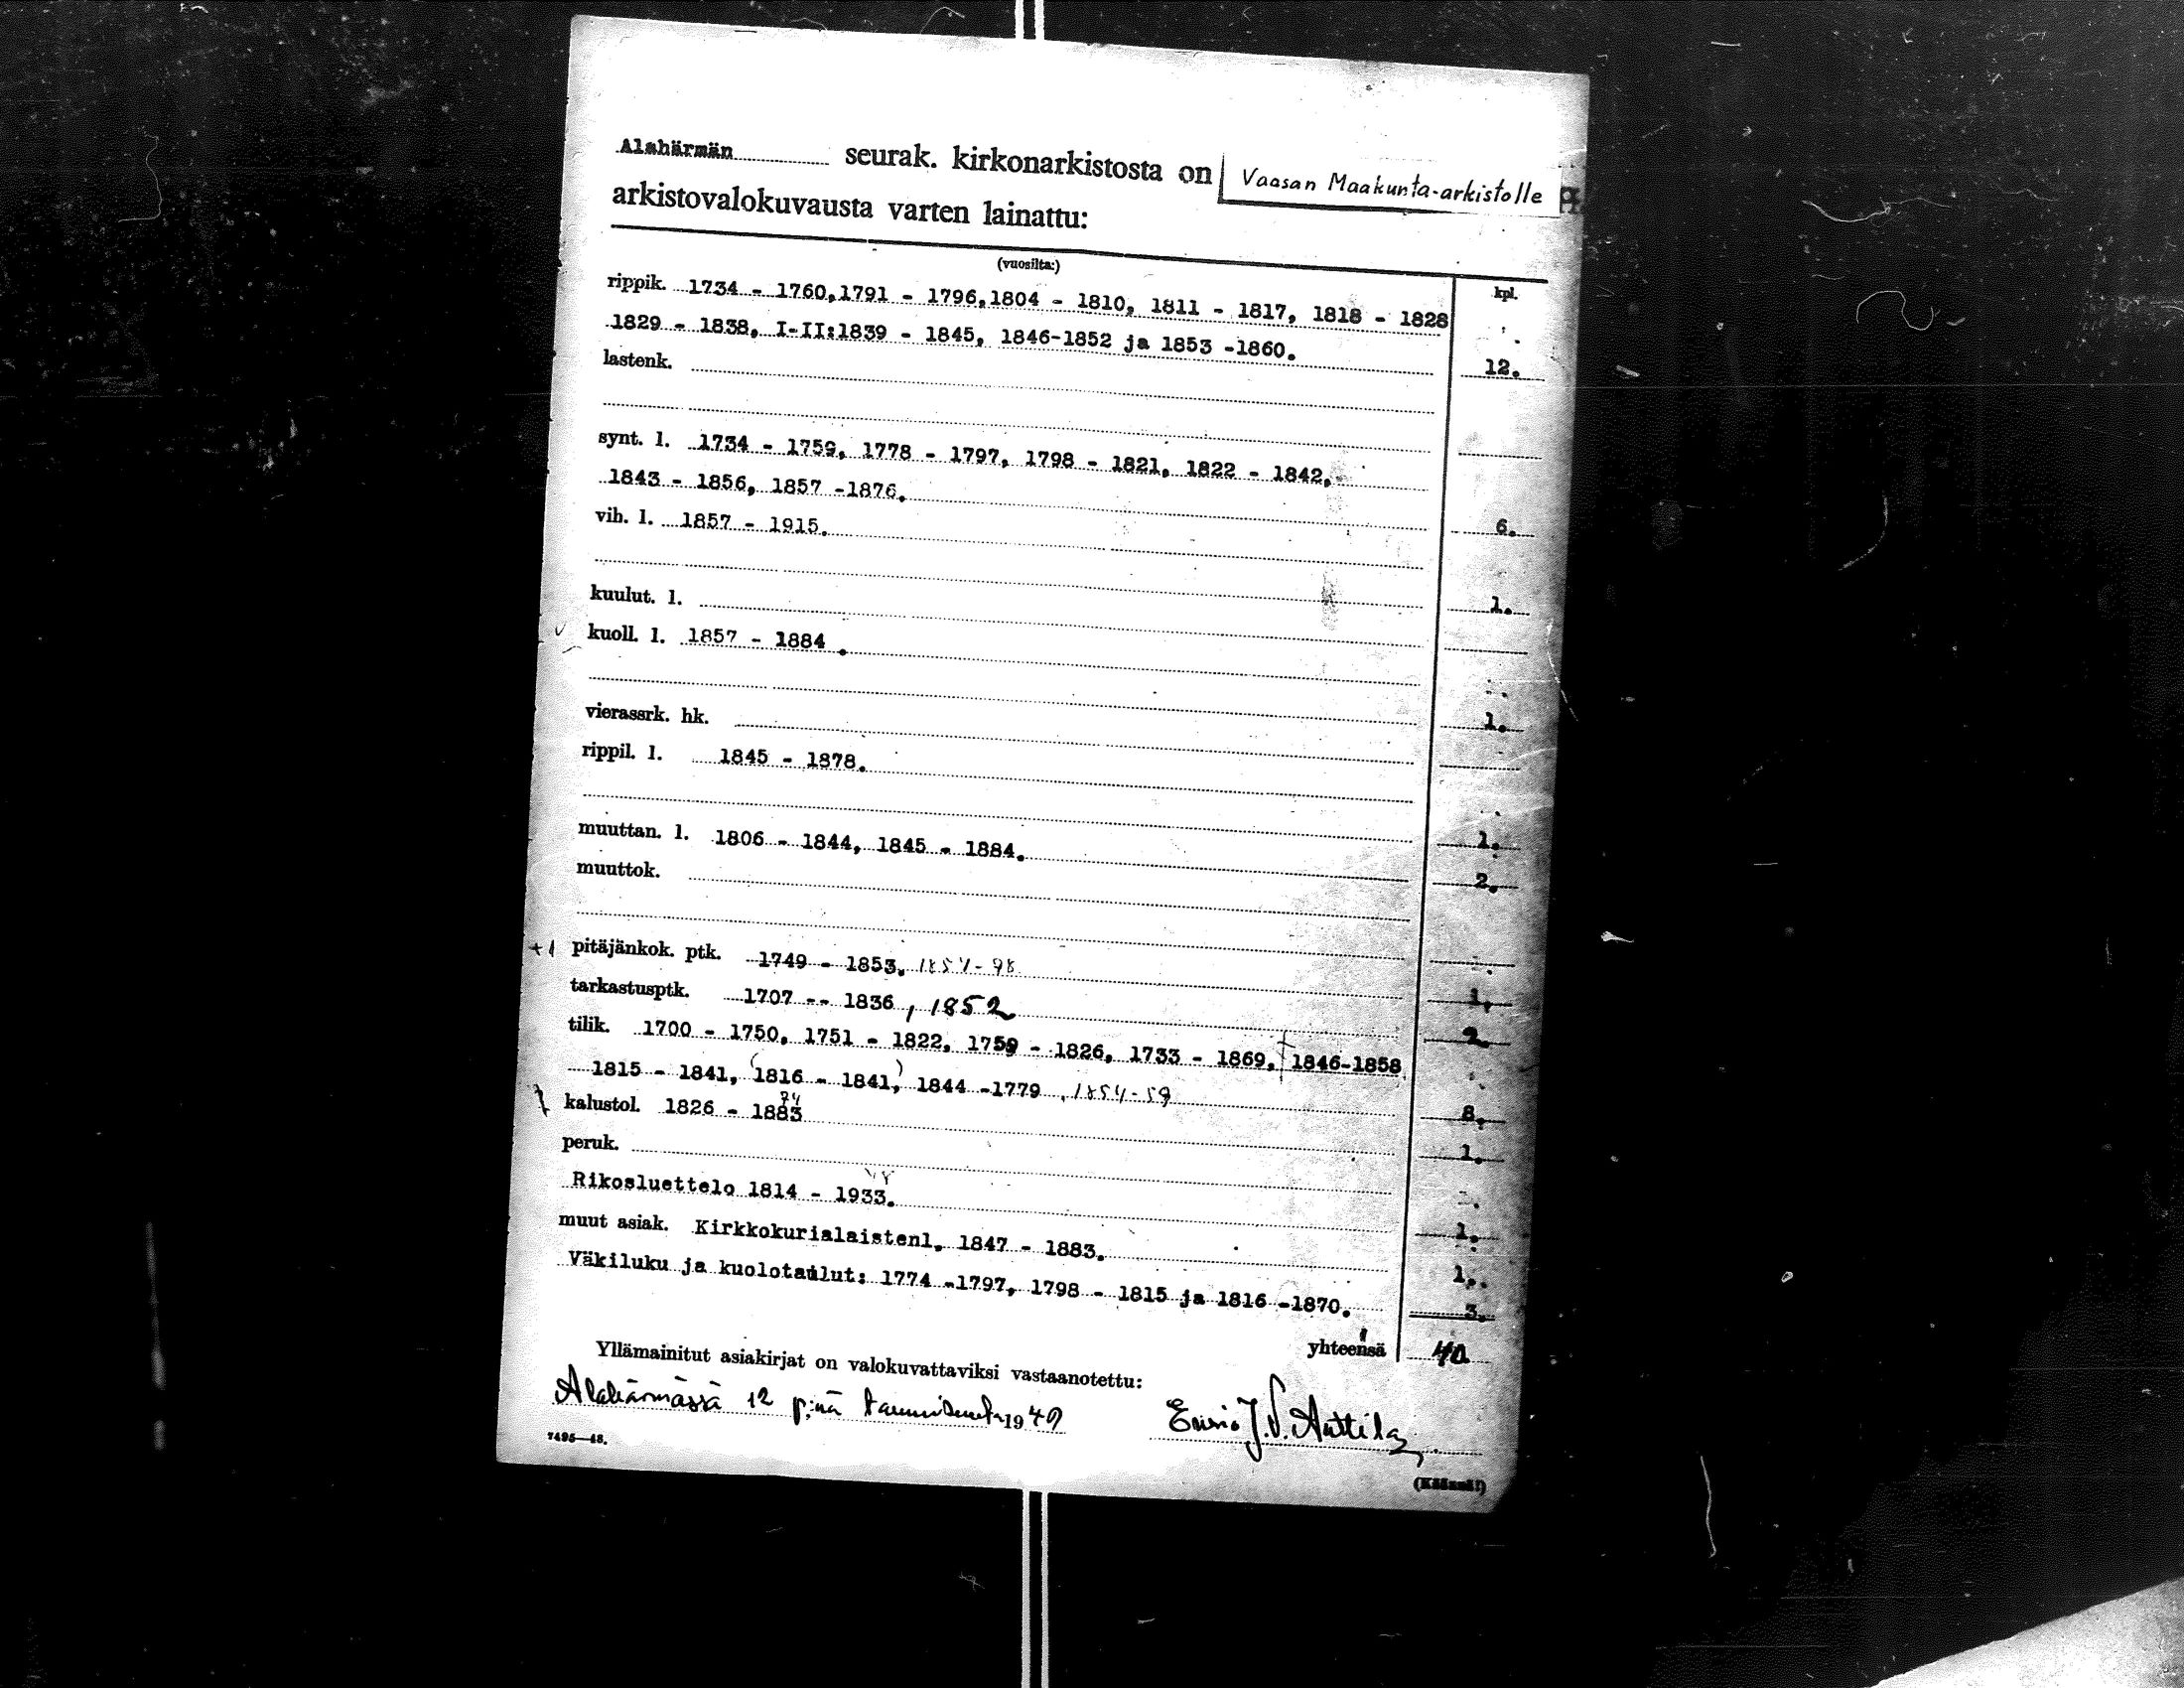 Alahärmän seurak. kirkonarkistosta on Vaasan Maakunta-arkistolle
arkistovalokuvausta varten lainattu:
(vuosilta:) kpl.
rippik. 1734 - 1760, 1791 - 1796, 1804 - 1810, 1811 - 1817, 1818 - 1828
1829 - 1838, I-II:1839 - 1845, 1846-1852 ja 1853 -1860. 12.
lastenk.
synt. l. 1734 - 1759, 1778 - 1797, 1798 - 1821, 1822 - 1842,
1843 - 1856, 1857 -1876. 6.
vih. l. 1857 - 1915.
1.
kuulut. l.
kuoll. l. 1857 - 1884 .
1.
vierassrk. hk.
rippil. l. 1845 - 1878.
1.
muuttan. l. 1806 - 1844, 1845 - 1884. 2.
muuttok.
+1 pitäjänkok. ptk. 1749 - 1853. 1.
tarkastusptk. 1707 -- 1836 , 1852 2.
tilik. 1700 - 1750, 1751 - 1822, 1759 - 1826, 1733 - 1869, 1846-1858
1815 - 1841, (1816 - 1841,) 1844 -1779 , 1854-59 8.
kalustol. 1826 - 1883 1.
peruk.
Rikosluettelo 1814 - 1933. 1.
muut asiak. Kirkkokurialaistenl. 1847 - 1883. 1.
Väkiluku ja kuolotaulut: 1774 -1797, 1798 - 1815 ja 1816 -1870. 3.
yhteensä 40
Yllämainitut asiakirjat on valokuvattaviksi vastaanotettu:
Alahärmässä 12 p:nä 1949
7495—48.
(Käännä!)